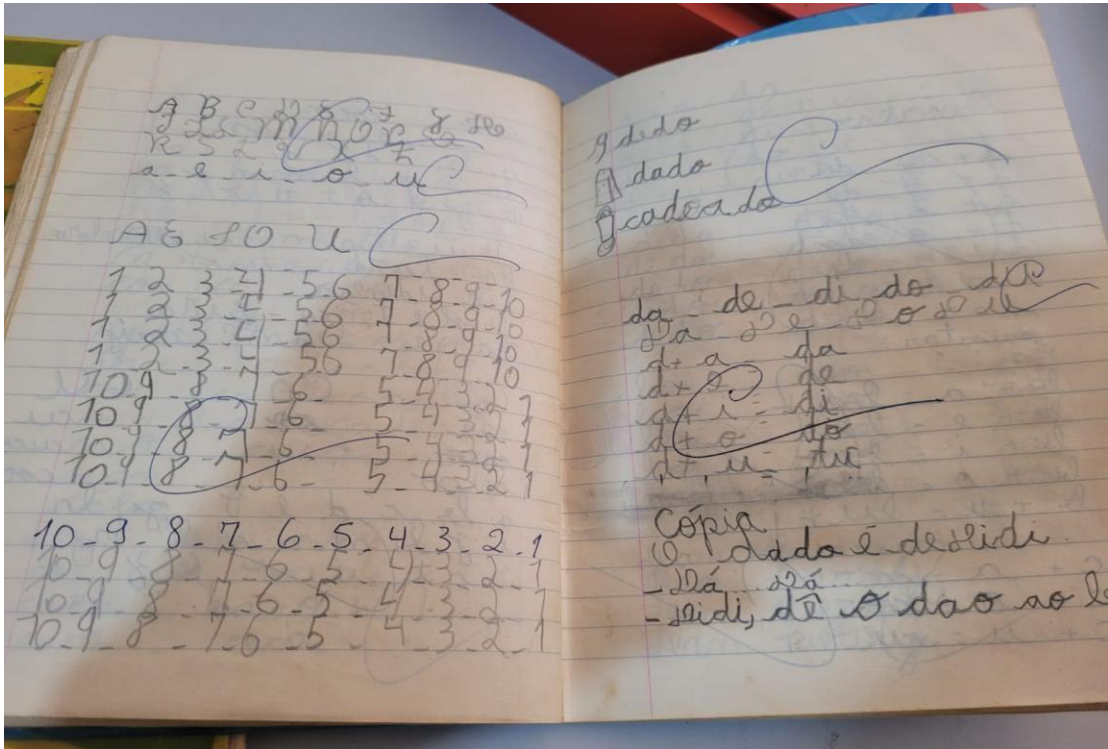 A B C D E F G H
I J L M N O P Q
R S T U V X Z
a - e - i - o - u
A E I O U
1 2 3 4 - 5 - 6 7 - 8 - 9 - 10
1 2 3 4 - 5 6 7 - 8 - 9 - 10
1 2 3 4 - 5 6 7 - 8 - 9 - 10
1 - 2 - 3 - 4 - 5 6 7 8 9 10
10 - 9 - 8 - 7 - 6 - 5 - 4 - 3 - 2 - 1
10 9 - 8 - 7 6 - 5 - 4 - 3 - 2 - 1
10 - 9 - 8 - 7 - 6 - 5 - 4 - 3 - 2 - 1
10 - 9 - 8 - 7 - 6 - 5 - 4 - 3 - 2 - 1
10 - 9 - 8 - 7 - 6 - 5 - 4 - 3 - 2 - 1
10 - 9 - 8 - 7 - 6 - 5 - 4 - 3 - 2 - 1
10 - 9 - 8 - 7 - 6 - 5 - 4 - 3 - 2 - 1
10 - 9 - 8 - 7 - 6 - 5 - 4 - 3 - 2 - 1
dido
dado
cadeado
da - de - di do du
d + a - da
d + e - de
d + i - di
d + o - do
d + u -
Cópia
O dado é de Didi.
- Dá Dá
- Didi, dê o dao ao